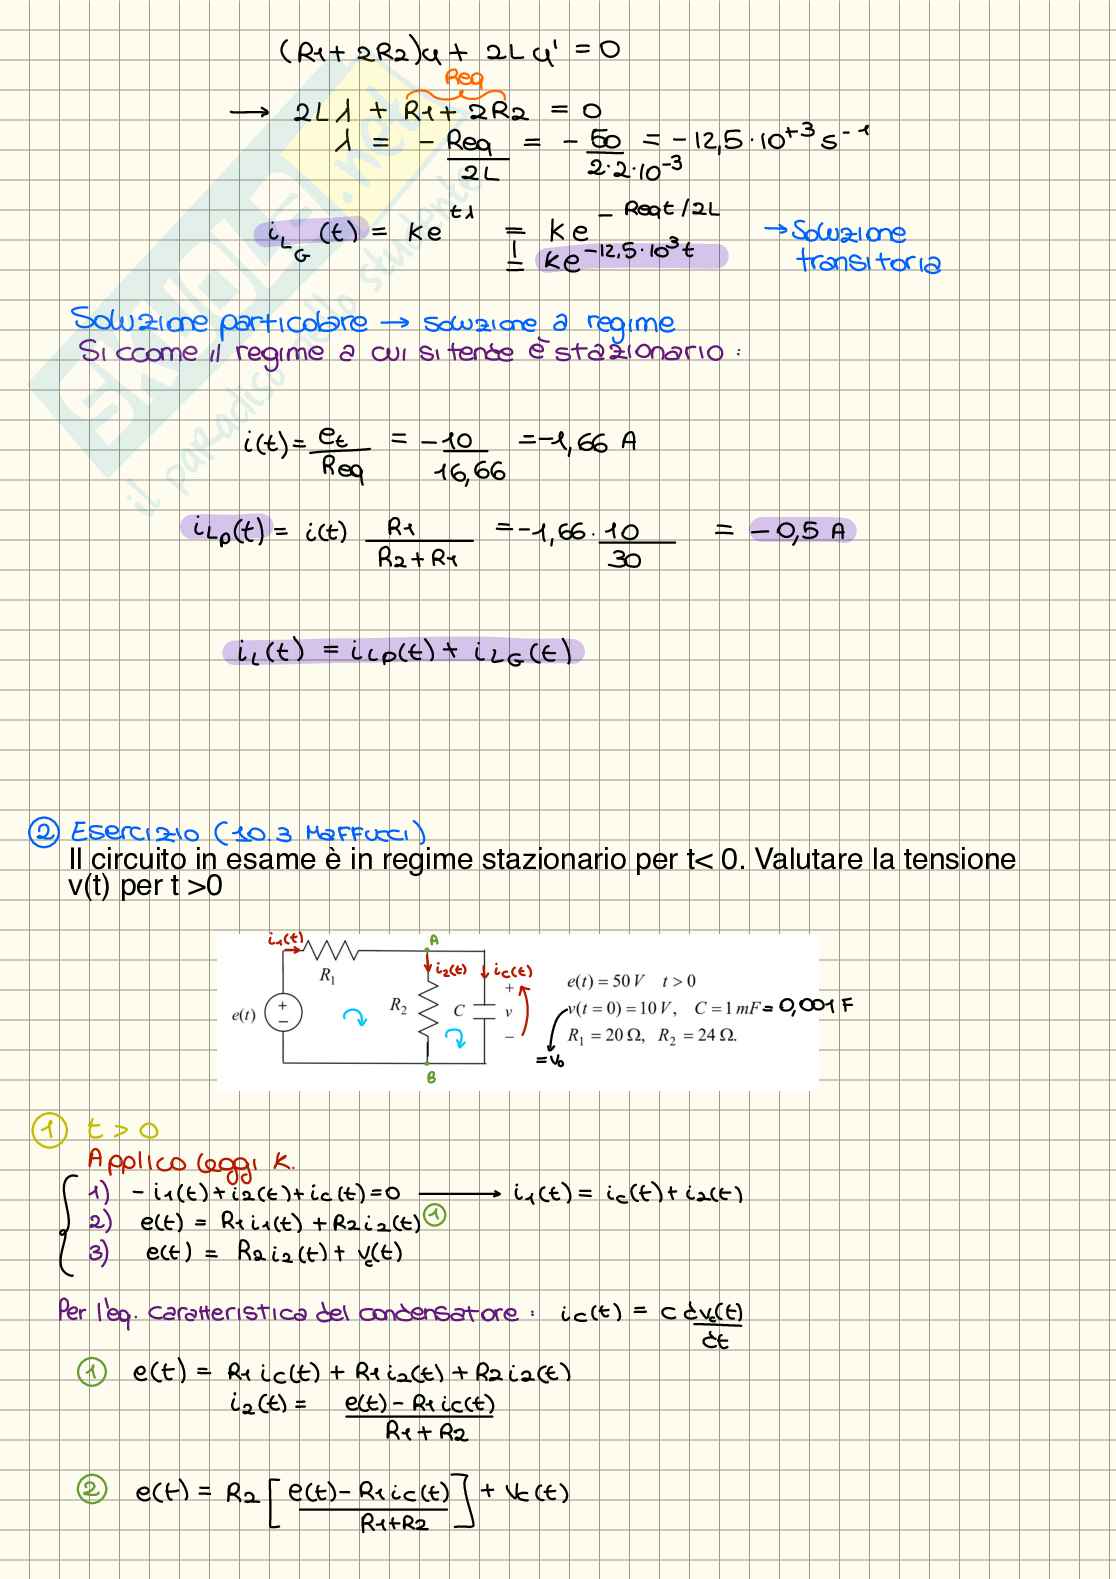 (R1 + 2R2)y + 2L y' = 0
Req
→ 2Lλ + R1 + 2R2 = 0
λ = - Req/2L = - 50/2·2·10^-3 = -12,5·10^+3 s^-1
iLG(t) = Ke^tλ = Ke^-Req t/2L → Soluzione
= Ke^-12,5·10^3 t transitoria
Soluzione particolare → soluzione a regime
Siccome il regime a cui si tende è stazionario :
i(t) = et/Req = -10/16,66 = -1,66 A
iLp(t) = i(t) R1/R2+R1 = -1,66 · 10/30 = -0,5 A
iL(t) = iLp(t) + iLG(t)
② Esercizio (10.3 Maffucci)
Il circuito in esame è in regime stazionario per t< 0. Valutare la tensione
v(t) per t >0
i1(t) A
R1 i2(t) ic(t)
e(t) = 50 V t > 0
e(t) + − R2 C + v −
v(t = 0) = 10 V, C = 1 mF = 0,001 F
R1 = 20 Ω, R2 = 24 Ω.
= v0
B
① t > 0
Applico leggi K.
1) - i1(t) + i2(t) + ic(t) = 0 → i1(t) = ic(t) + i2(t)
2) e(t) = R1 i1(t) + R2 i2(t) ①
3) e(t) = R2 i2(t) + vc(t)
Per l'eq. caratteristica del condensatore : ic(t) = C dvc(t)/dt
① e(t) = R1 ic(t) + R1 i2(t) + R2 i2(t)
i2(t) = e(t) - R1 ic(t)/R1 + R2
② e(t) = R2 [e(t) - R1 ic(t)/R1+R2] + vc(t)
SKUOLA.net
il paradiso dello studente